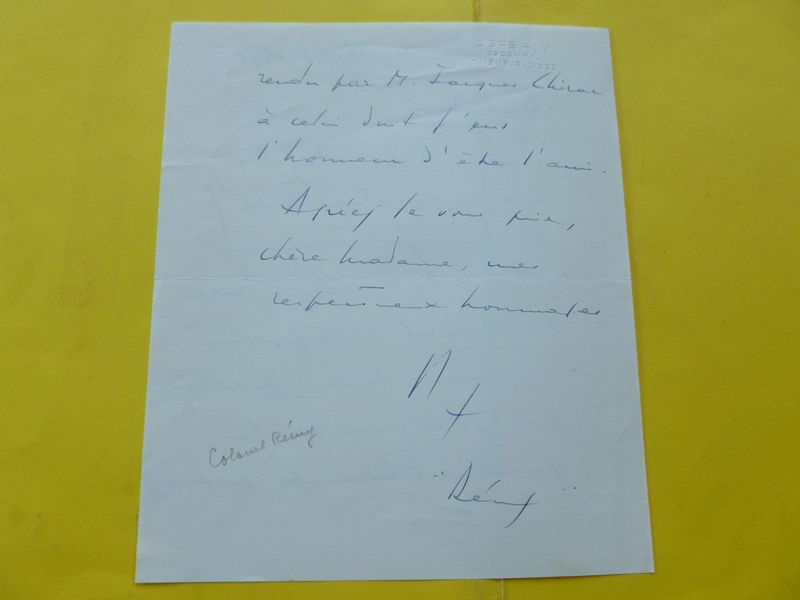 rendu par M. Jacques Chirac
à celui dont j'eus
l'honneur d'être l'ami.
Agréez je vous prie,
chère Madame, mes
respectueux hommages
"Rémy"
Colonel Rémy